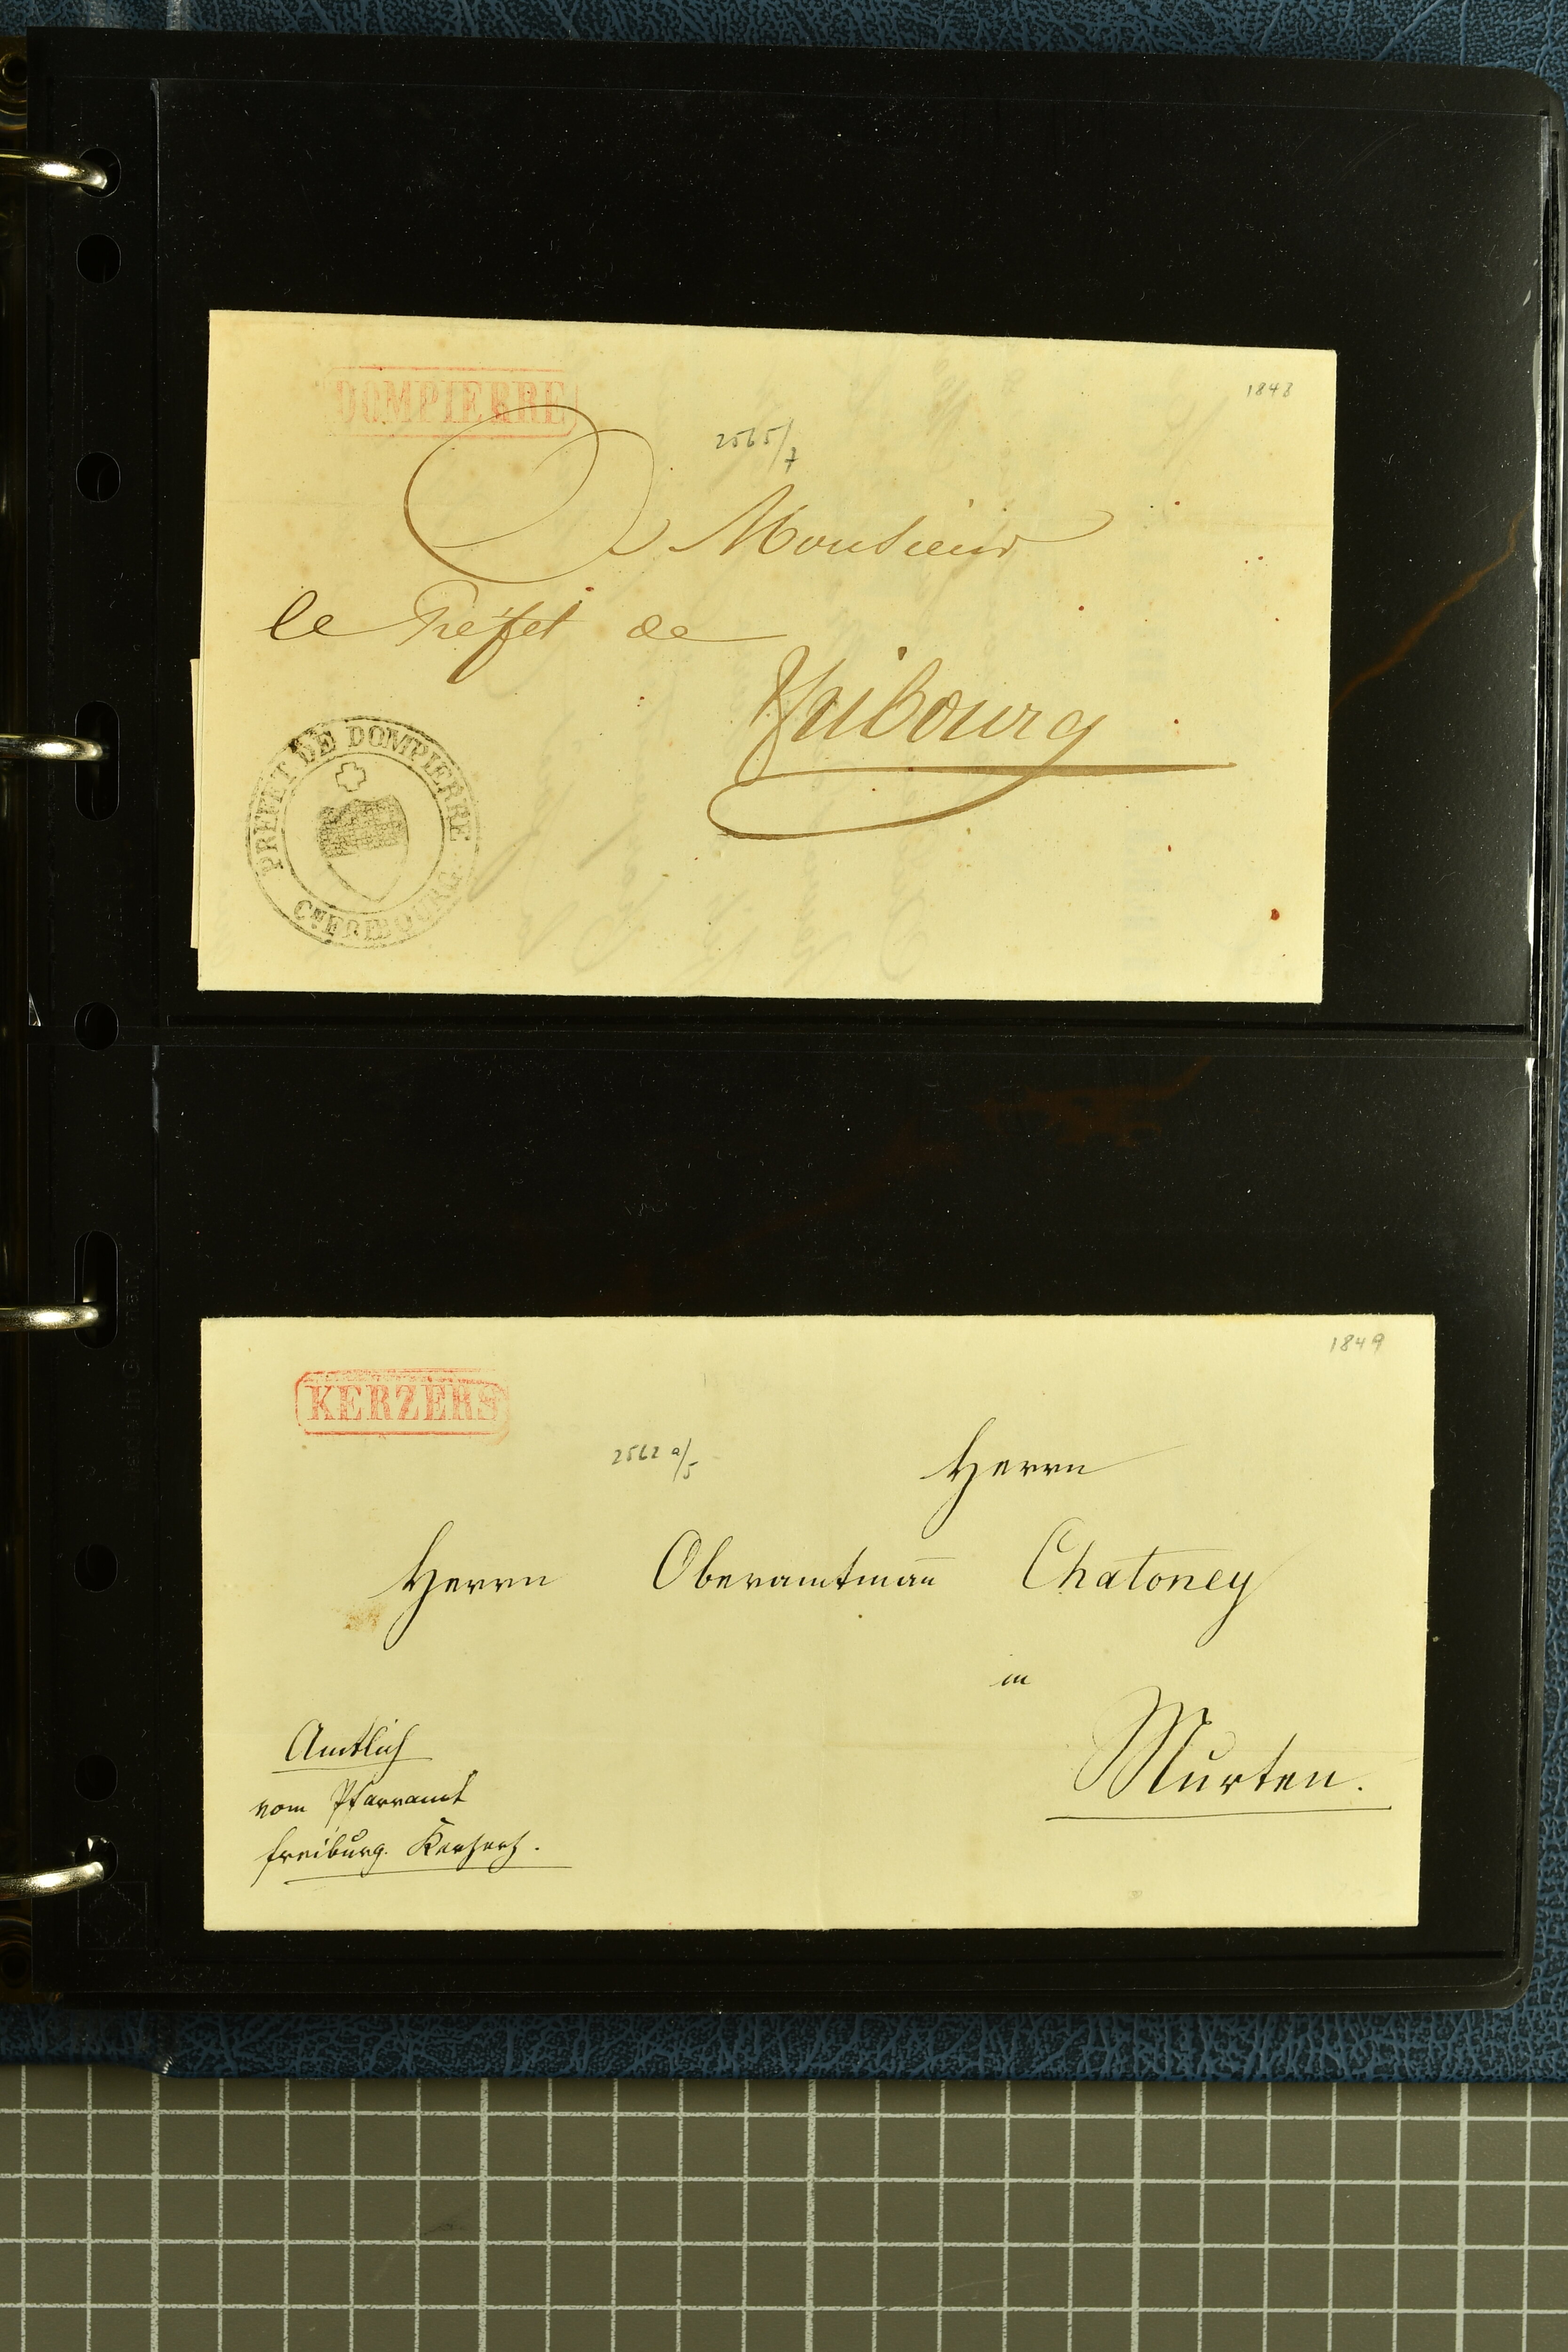 DOMPIERRE
1848
2565/7
A Monsieur
le Préfet de
Fribourg
PRÉFET DE DOMPIERRE
Cᴺ FRIBOURG
KERZERS
1849
2562 a/5
Herrn
Herrn Oberamtman̄ Chatoney
in
Murten.
Amtlich
vom Pfarramt
freiburg. Kerzerz.